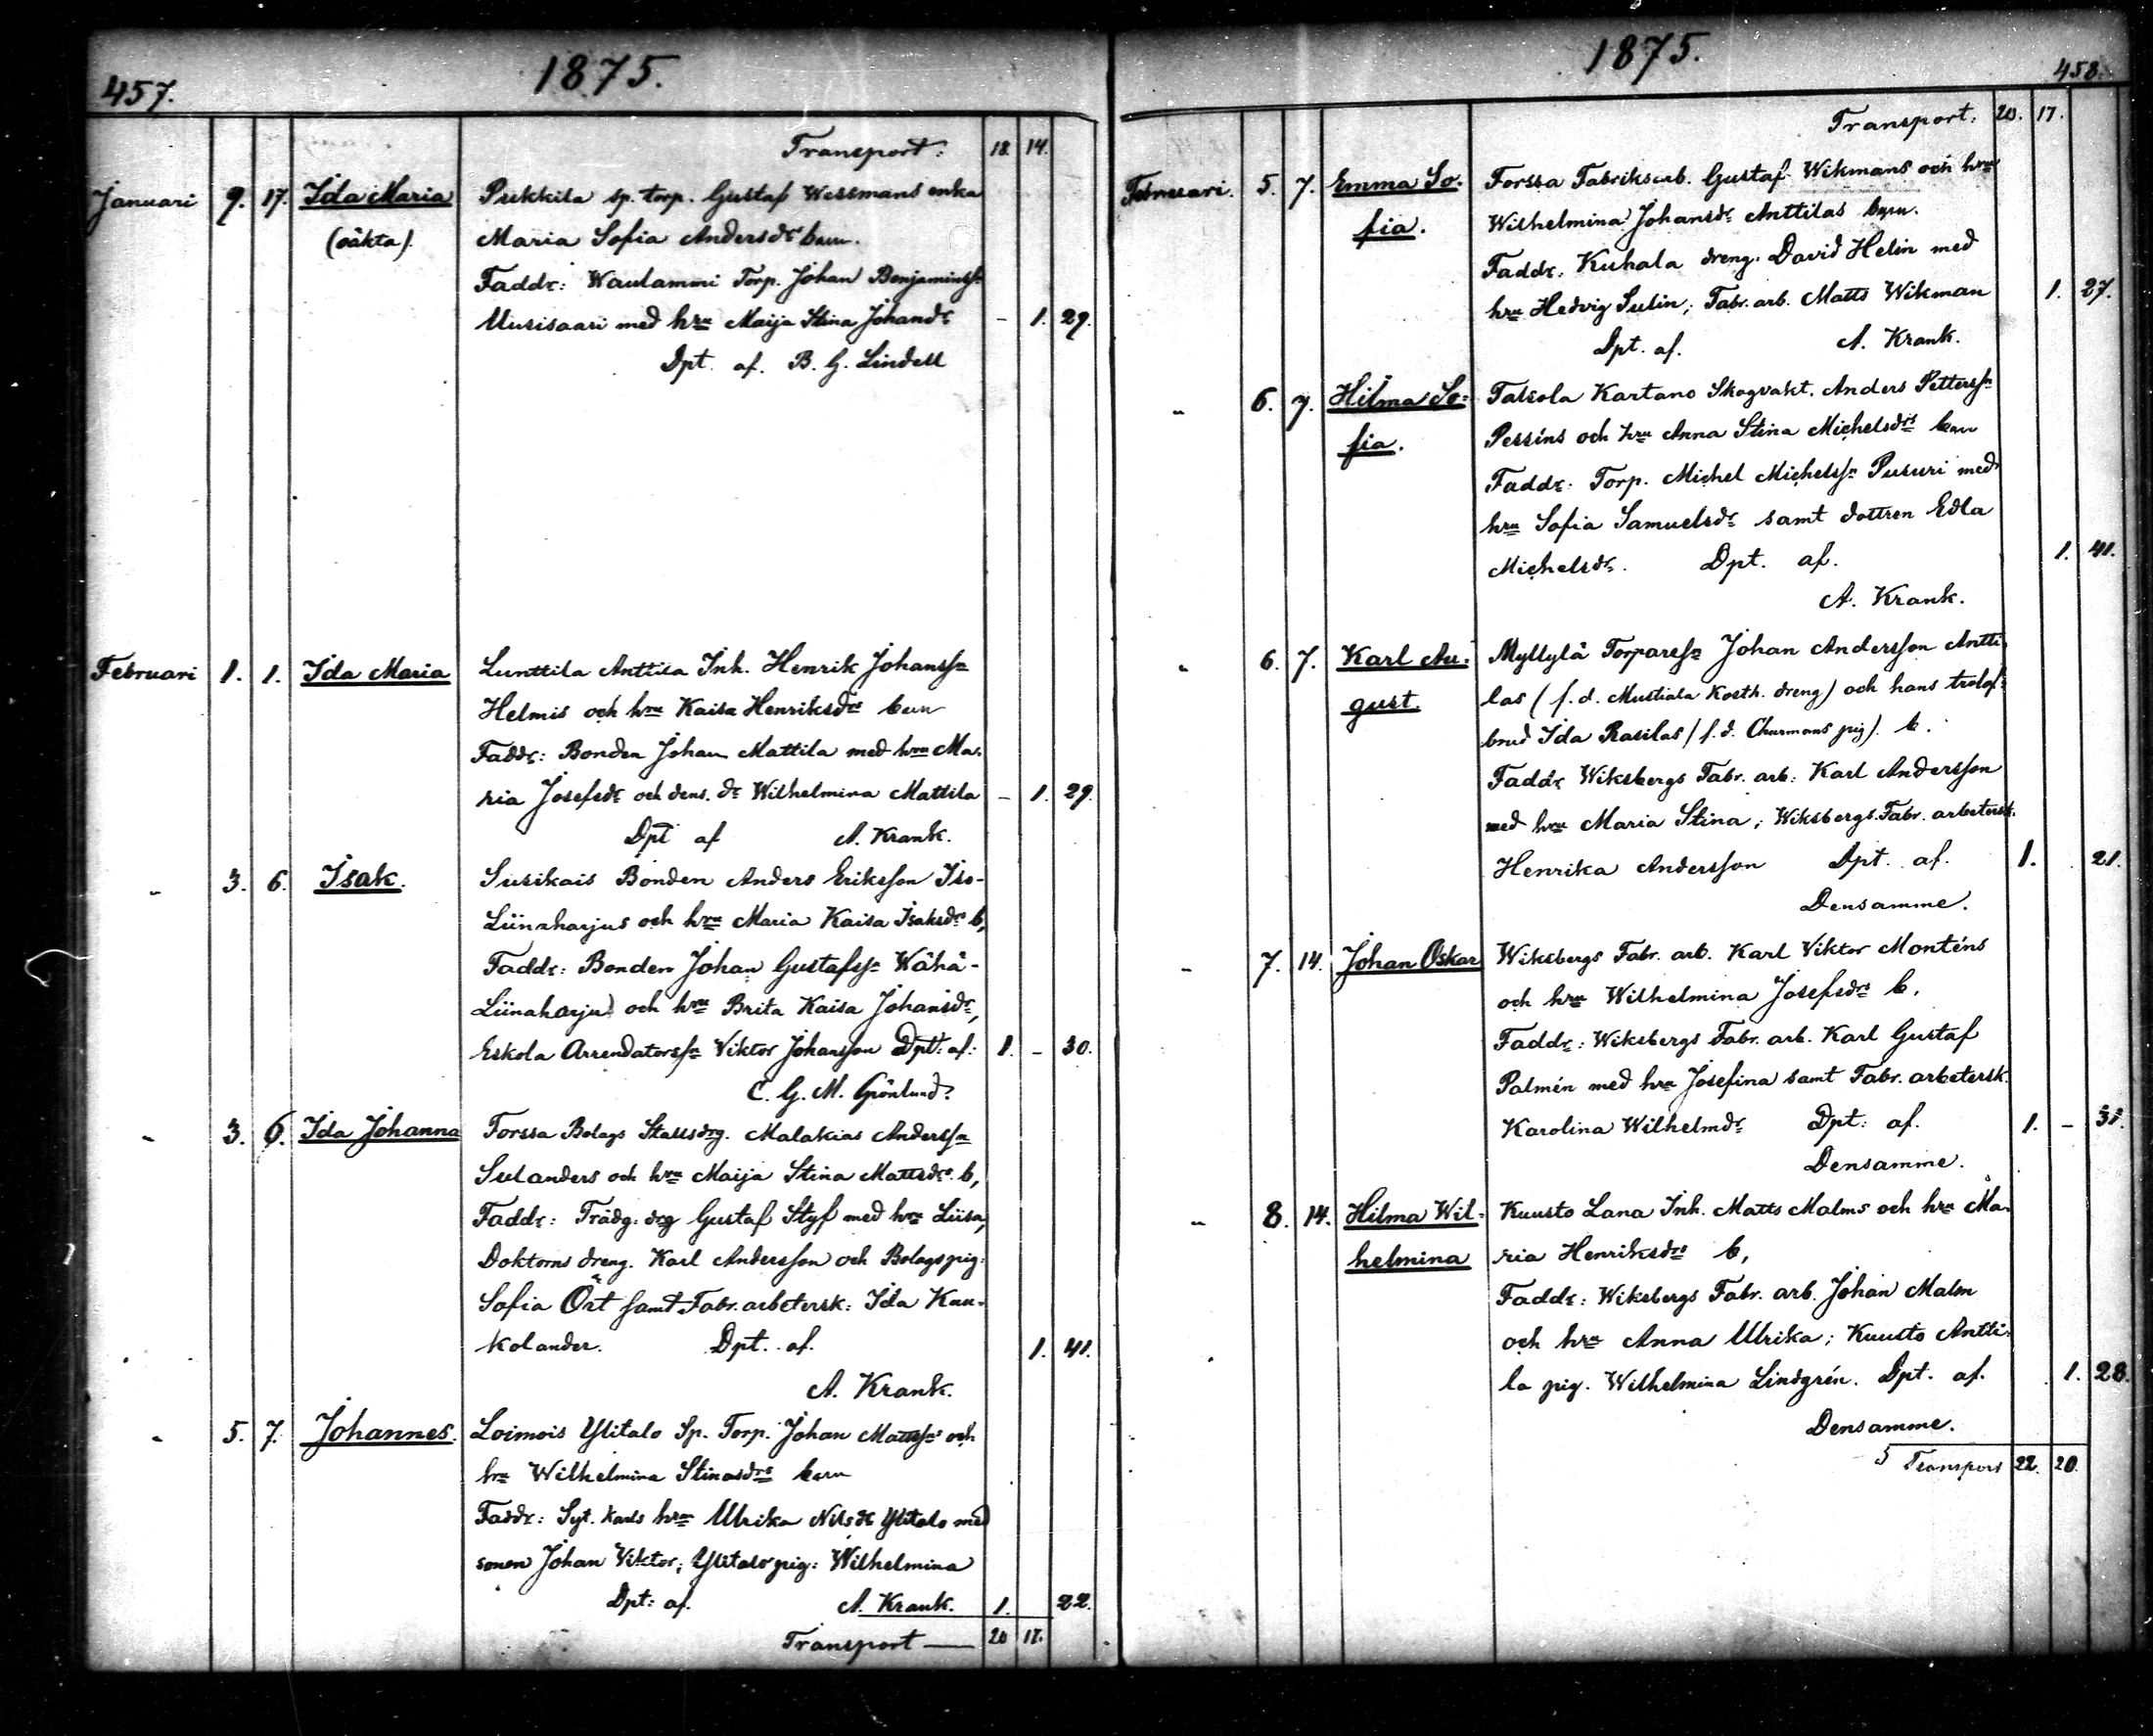 457.
1875.
Transport: 18. 14.
Januari 9. 17. Ida Maria Pukkila sp. torp. Gustaf Wessmans enka
(oäkta). Maria Sofia Andersdr barn.
Faddr: Waulammi Torp. Johan Benjaminss:n
Uusisaari med hru Maija Stina Johansdr – 1. 29.
Dpt. af. B. G. Lindell
Februari 1. 1. Ida Maria Lunttila Anttila Inh. Henrik Johanss:n
Helmis och hru Kaisa Henriksdrs barn
Faddr: Bonden Johan Mattila med hru Ma-
ria Josefsdr och dens. dr Wilhelmina Mattila – 1. 29.
Dpt af A. Krank.
" 3. 6. Isak. Susikais Bonden Anders Eriksson Iso-
Liinaharjus och hru Maria Kaisa Isaksdrs b,
Faddr: Bonden Johan Gustafss:n Wähä-
Liinaharju och hru Brita Kaisa Johansdr,
Eskola Arrendatorss:n Viktor Johansson Dpt: af: 1. – 30.
C. G. M. Grönlund.
" 3. 6. Ida Johanna Forssa Bolags Stallsdrg. Malakias Anderss:n
Sulanders och hru Maija Stina Mattsdrs b,
Faddr: Trädg. drg Gustaf Styf med hru Liisa,
Doktorns dreng. Karl Andersson och Bolagspig:
Sofia Ört samt Fabr. arbetersk: Ida Kau-
kolander. Dpt. af. 1. 41.
A. Krank.
" 5. 7. Johannes. Loimois Ylitalo Sp. Torp. Johan Mattss:ns och
hru Wilhelmina Stinasdrs barn
Faddr: Syt. Karls hru Ulrika Nilsdr Ylitalo med
sonen Johan Viktor; Ylitalo pig: Wilhelmina
Dpt: af. A. Krank. 1. 22.
Transport — 20 17.
1875.
458.
Transport: 20. 17.
Februari. 5. 7. Emma So- Forssa Fabriksarb. Gustaf Wikmans och hru
fia. Wilhelmina Johansdr Anttilas barn.
Faddr. Kuhala dreng. David Helin med
hru Hedvig Sulin; Fabr. arb. Matts Wikman 1. 27.
Dpt. af. A. Krank.
" 6. 7. Hilma So- Talsola Kartano Skogvakt. Anders Petterss:n
fia. Pessins och hru Anna Stina Michelsdrs barn
Faddr: Torp. Michel Michelss:n Pusuri med
hru Sofia Samuelsdr samt dottren Edla
Michelsdr. Dpt. af. 1. 41.
A. Krank.
" 6. 7. Karl Au- Myllylä Torpares:n Johan Andersson Antti-
gust. las (f. d. Mustiala Kosth. dreng) och hans trolof-
brud Ida Rasilas (f. d. Churmans pig). b.
Faddr Wiksbergs Fabr. arb: Karl Andersson
med hru Maria Stina; Wiksbergs Fabr. arbetersk.
Henrika Andersson Dpt. af. 1. 21.
Densamme.
" 7. 14. Johan Oskar Wiksbergs Fabr. arb. Karl Viktor Monténs
och hru Wilhelmina Josefsdrs b,
Faddr: Wiksbergs Fabr. arb. Karl Gustaf
Palmén med hru Josefina samt Fabr. arbetersk.
Karolina Wilhelmsdr Dpt: af. 1. – 31.
Densamme.
" 8. 14. Hilma Wil- Kuusto Lana Inh. Matts Malms och hru Ma-
helmina ria Henriksdrs b,
Faddr: Wiksbergs Fabr. arb. Johan Malm
och hru Anna Ulrika; Kuusto Antti-
la pig. Wilhelmina Lindgrén. Dpt. af. 1. 28.
Densamme.
Transport 22. 20.